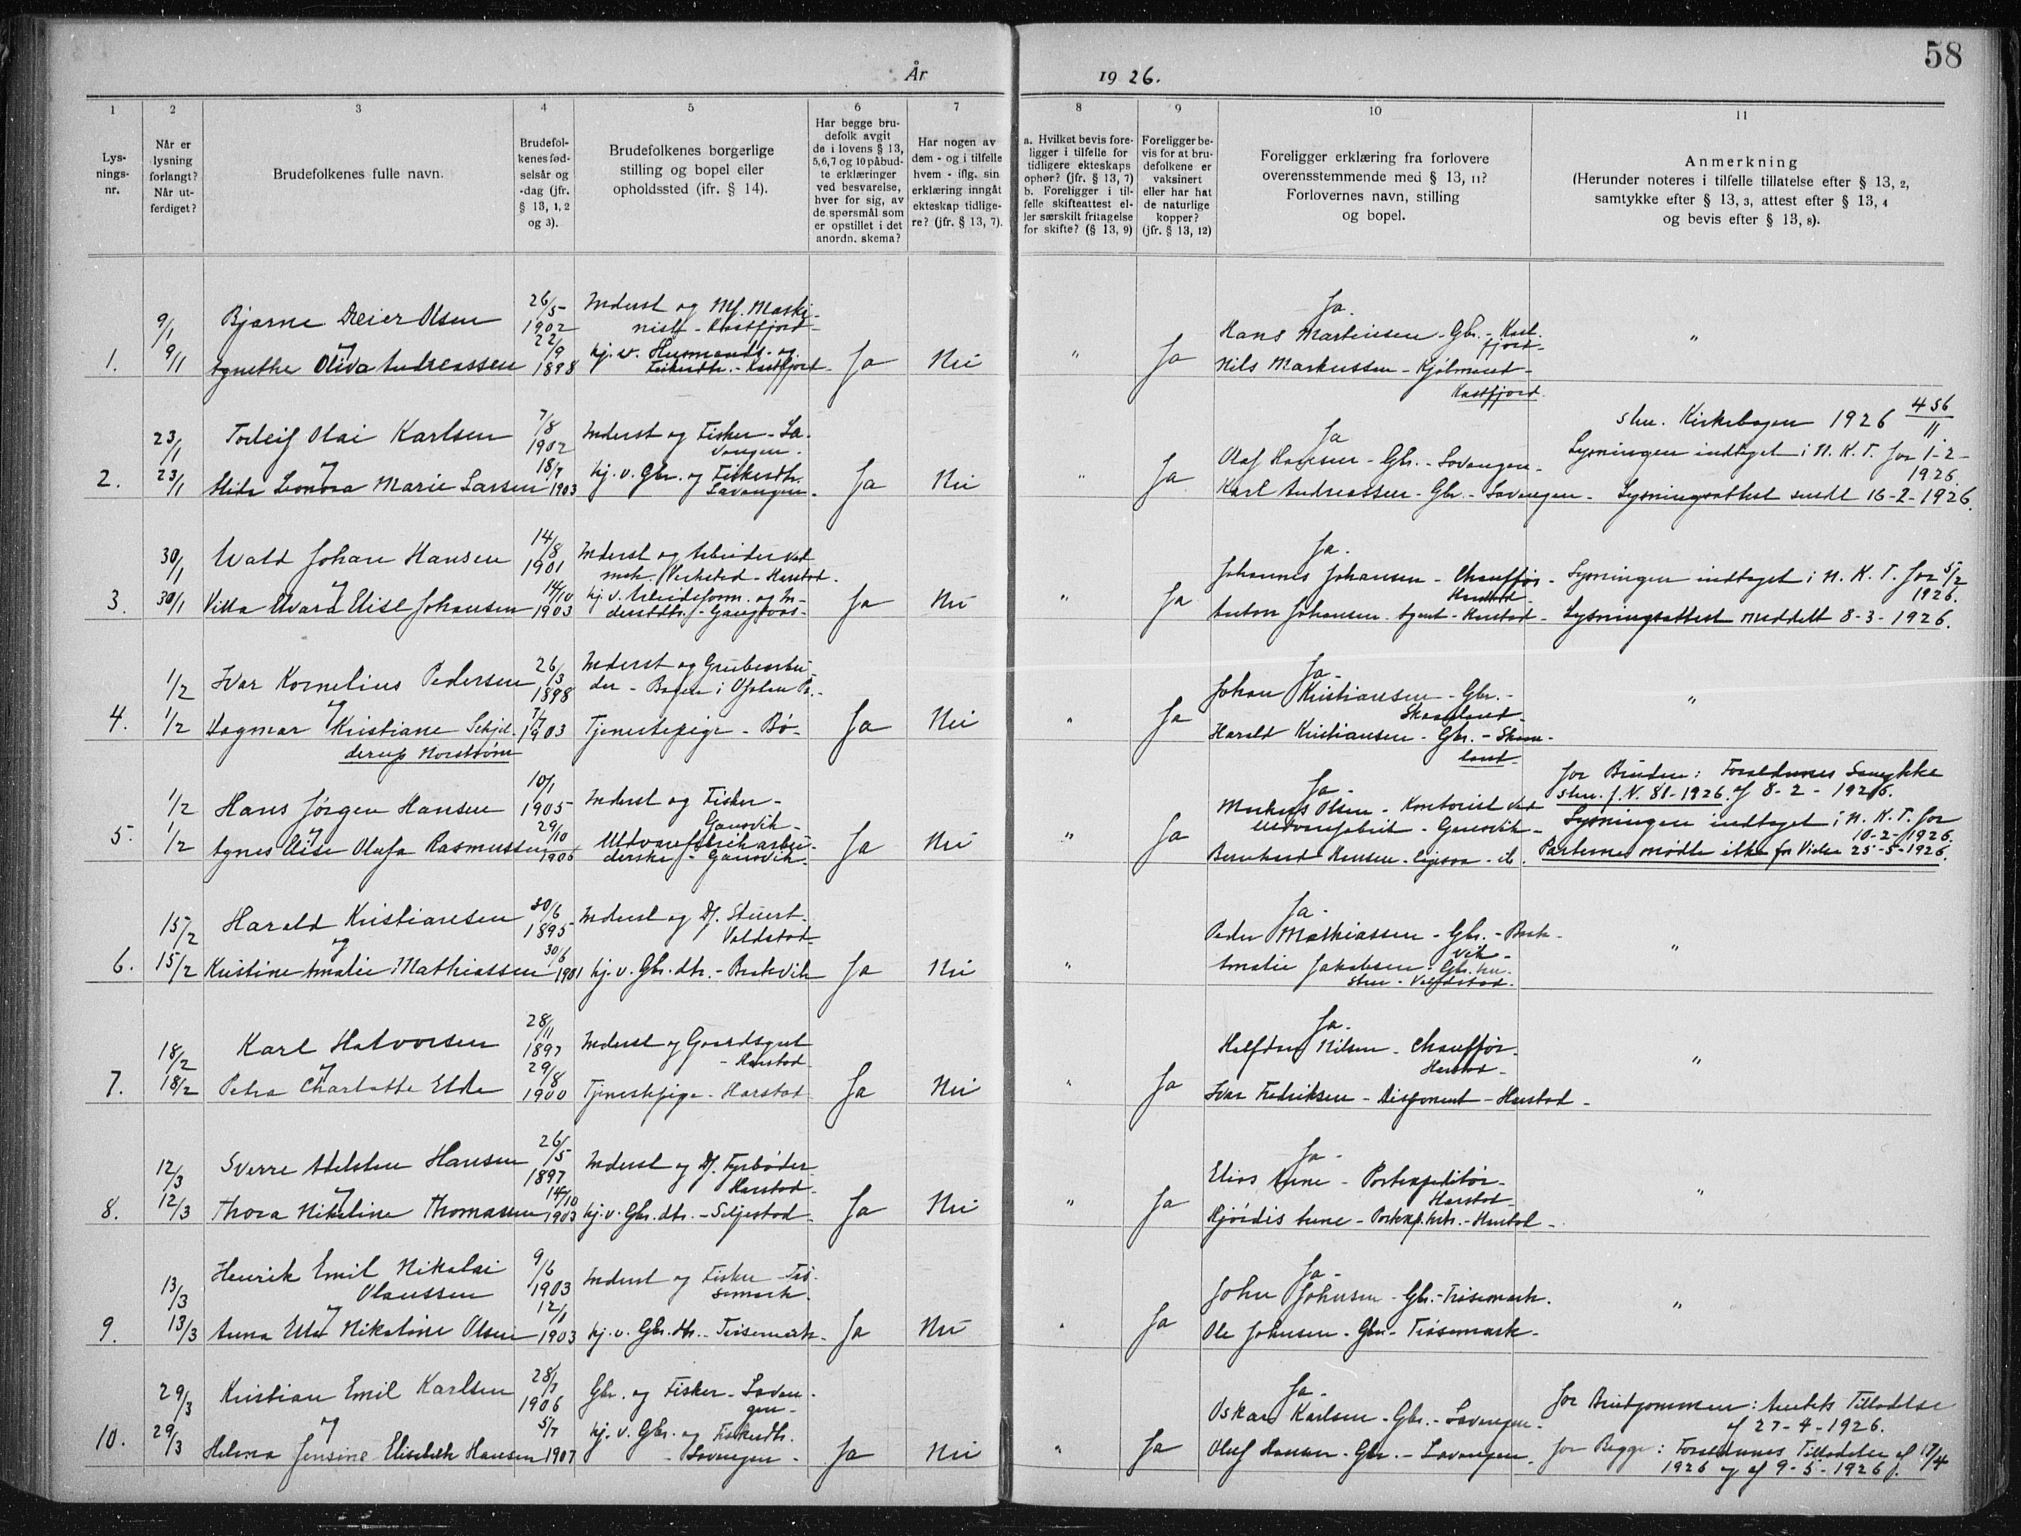 58
År 1926.
1 2 3 4 5 6 7 8 9 10 11
Lys-
nings-
nr.
Når er
lysning
forlangt?
Når ut-
ferdiget?
Brudefolkenes fulle navn.
Brudefol-
kenes fød-
selsår og
-dag (jfr.
§ 13, 1, 2
og 3).
Brudefolkenes borgerlige
stilling og bopel eller
opholdssted (jfr. § 14).
Har begge bru-
defolk avgit
de i lovens § 13,
5,6,7 og 10 påbud-
te erklæringer
ved besvarelse,
hver for sig, av
de spørsmål som
er opstillet i det
anordn. skema?
Har nogen av
dem - og i tilfelle
hvem - iflg. sin
erklæring inngått
ekteskap tidlige-
re? (jfr. § 13, 7).
a. Hvilket bevis fore-
ligger i tilfelle for
tidligere ekteskaps
ophør? (jfr. § 13, 7)
b. Foreligger i til-
felle skifteattest el-
ler særskilt fritagelse
for skifte? (§ 13, 9)
Foreligger be-
vis for at bru-
defolkene er
vaksinert
eller har hat
de naturlige
kopper?
(jfr. § 13, 12)
Foreligger erklæring fra forlovere
overensstemmende med § 13, 11?
Forlovernes navn, stilling
og bopel.
Anmerkning
(Herunder noteres i tilfelle tillatelse efter § 13, 2,
samtykke efter § 13, 3, attest efter § 13, 4
og bevis efter § 13, 8).
1.
9/1
9/1
Bjarne Meier Olsen
og
Agnethe Oliva Andreassen
26/5
1902
22/9
1898
Inderst og Mf. Maski-
nist - Kastfjord -
hj. v. Husmands- og
Fiskerdtr. - Kastfjord -
Ja
Nei
"
Ja
Ja.
Hans Martinsen - Gbr. - Kast-
fjord -
Nils Markussen - Kjølmand -
Kastfjord.
"
2.
23/1
23/1
Torleif Olai Karlsen
og
Alida Leonora Marie Larsen
7/8
1902
18/7
1903
Inderst og Fisker - La-
vangen -
hj. v. Gbr. og Fiskerdtr.
Lavangen -
Ja
Nei
"
Ja
Ja
Olaf Hansen - Gbr. - Lavangen -
Karl Andreassen - Gbr - Lavangen -
skr. Kirkebogen 1926 456/11
Lysningen indtaget i N. K. T. for 1-2-
1926.
Lysningsattest sendt 16-2-1926.
3.
30/1
30/1
Wald Johan Hansen
og
Villa Alvara Elise Johansen
14/8
1901
14/10
1903
Inderst og Arbeider ved
mek. Verksted - Harstad.
hj. v. Arbeidsform. og In-
derstdtr. - Gangsaas -
Ja
Nei
"
Ja
Ja.
Johannes Johansen - Chauffør -
Harstad -
Anton Johansen - Agent - Harstad -
Lysningen indtaget i N. K. T. for 5/2
1926.
Lysningsattest meddelt 8-3-1926.
4.
1/2
1/2
Ivar Kornelius Pedersen
og
Dagmar Kristiane Schjel-
derup Norstrøm
26/3
1898
7/7
1903
Inderst og Grubearbei-
der - Bogen i Ofoten Pr. -
Tjenestepige - Bø -
Ja
Nei
"
Ja
Ja -
Johan Kristiansen - Gbr. -
Skaaland -
Harald Kristiansen - Gbr. - Skaa-
land -
"
5.
1/2
1/2
Hans Jørgen Hansen
og
Agnes Elise Olufa Rasmussen
10/1
1905
29/10
1906
Inderst og Fisker -
Gansvik -
Uldvarefabrikarbei-
derske - Gansvik -
Ja
Nei
"
Ja
Ja -
Markus Olsen - Kontorist ved
Uldvarefabrik - Gansvik -
Bernhard Hansen - ligesaa -
for Bruden: Forældrenes Samtykke
skr. j. N. 81-1926 af 8-2-1926.
Lysningen indtaget i N. K. T. for
10-2-1926.
Parterne mødte ikke for Vielse 25-5-1926.
6.
15/2
15/2
Harald Kristiansen
og
Kristine Amalie Mathiassen
30/6
1895
30/6
1901
Inderst og D/. Stuert -
Voldstad -
hj. v. Gbr. dtr. - Brokvik
Ja
Nei
"
Ja
Ja -
Peder Mathiassen - Gbr. - Brok-
vik -
Amalie Jakobsen - Gbr. hu-
stru - Voldstad.
"
7.
18/2
18/2
Karl Halvorsen
og
Petra Charlotte Elde
28/11
1897
29/8
1900
Inderst og Gaardsgut
- Harstad -
Tjenestepige - Harstad
Ja
Nei
"
Ja
Ja.
Halfdan Nilsen - Chauffør -
Harstad -
Ivar Fredriksen - Disponent - Harstad -
"
8.
12/3
12/3
Sverre Adelsten Hansen
og
Thora Nikoline Thomasen
26/5
1897
14/10
1903
Inderst og D/. Fyrbøder -
Harstad -
hj. v. Gbr. dtr. - Seljestad -
Ja
Nei
"
Ja
Ja -
Elias Aune - Postexpeditør -
Harstad -
Hjørdis Aune - Postexp. hstr. - Harstad -
"
9.
13/3
13/3
Henrik Emil Nikolai
Olaussen
og
Anna Elea Nikoline Olsen
9/6
1903
12/1
1903
Inderst og Fisker - Tøs-
semark.
hj. v. Gbr. dtr. - Tøssemark -
Ja
Nei
"
Ja
Ja -
John Johnsen - Gbr. - Tøssemark.
Ole Johnsen - Gbr - Tøssemark -
"
10.
29/3
29/3
Kristian Emil Karlsen
og
Helena Jensine Elisabeth Hansen
28/7
1906
5/7
1907
Gbr. og Fisker - Lavan-
gen -
hj. v. Gbr. og Fiskerdtr.
- Lavangen -
Ja
Nei
"
Ja
Ja -
Oskar Karlsen - Gbr. - Lavangen -
Oluf Hansen - Gbr. - Lavangen.
for Brudgommen: Amtets Tilladelse
af 27-4-1926.
for Begge: Forældrenes Tilladelse af 17/4
1926 og af 9-5-1926.